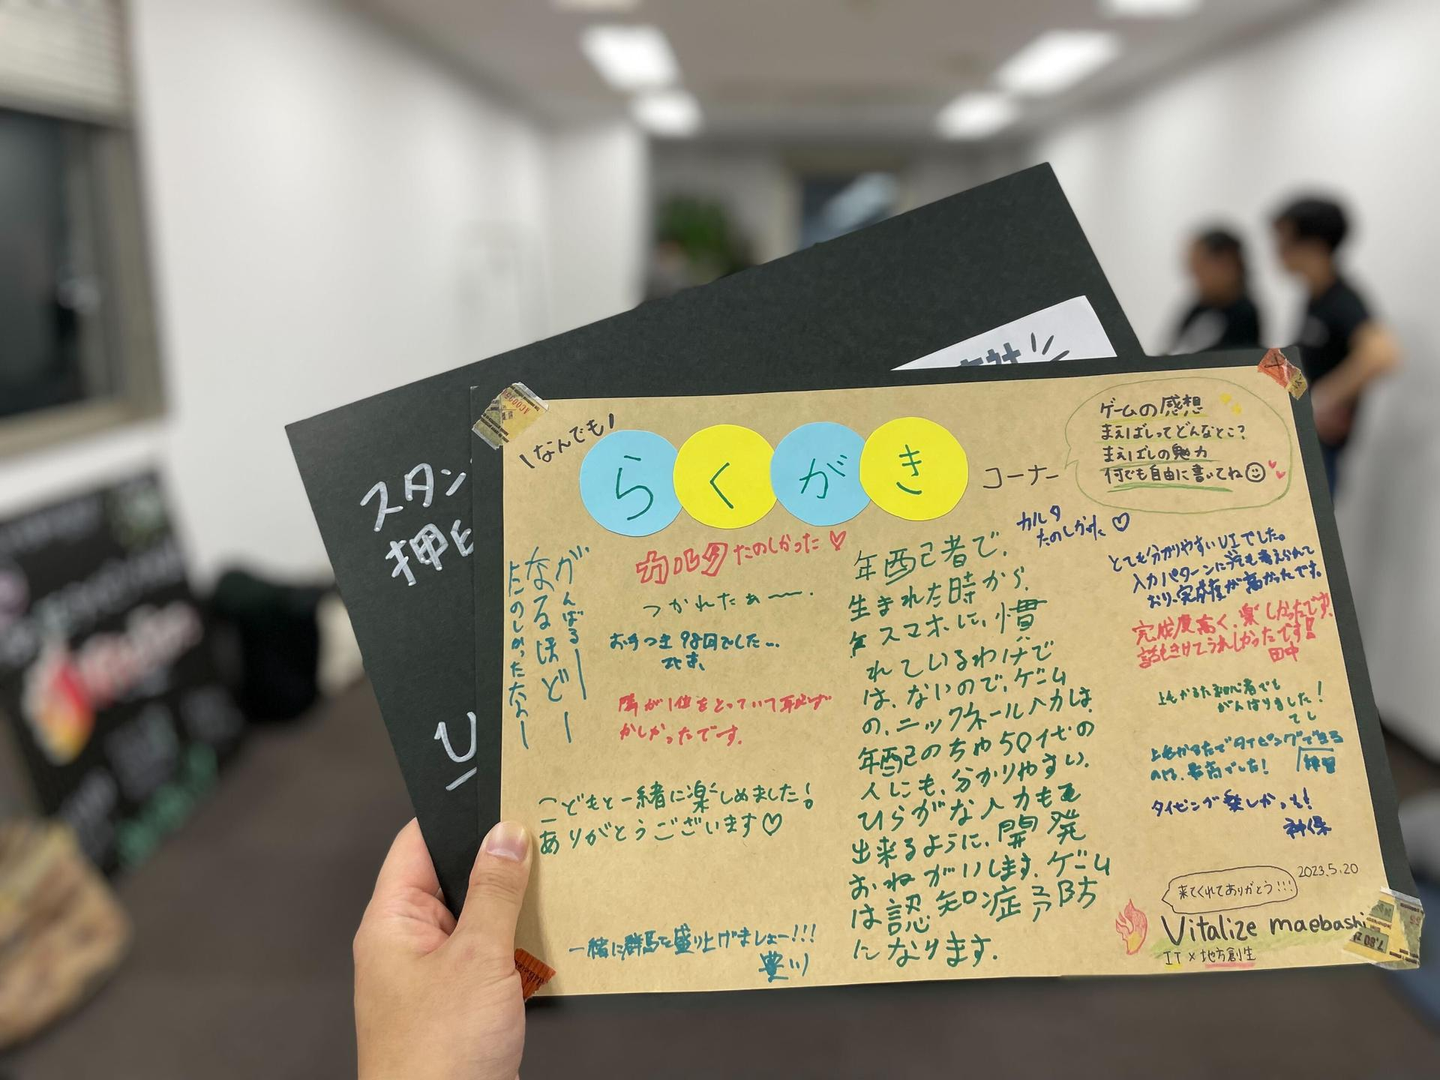 なんでも
らくがき
コーナー
ゲームの感想
まえばしってどんなとこ?
まえばしの魅力
何でも自由に書いてね
がんばるー
なるほどー
たのしかったなぁー
カルタたのしかった♡
つかれたぁ〜〜.
お手つき98回でした...
かしかったです。
こどもと一緒に楽しめました!
ありがとうございます♡
一緒に群馬を盛り上げましょー!!!
豊川
年配者で、
生まれた時から、
スマホに、慣
れているわけで
は、ないので、ゲーム
の、ニックネール入力は
年配のちゅ50代の
人にも、分かりやすい、
ひらがな入力も
出来るように、開発
おねがいします。ゲーム
は認知症予防
になります。
カルタ
たのしかった♡
とても分かりやすいUIでした。
入力パターンに考えられて
おり、完成度が高かったです。
完成度高く、楽しかったです。
話もきけてうれしかったです!!
田中
上毛かるた初心者でも
がんばりました!
てし
上毛かるたでタイピングできる
のは、最高でした!
タイピング楽しかった!
神保
2023.5.20
来てくれてありがとう!!!
Vitalize maebashi
IT×地方創生
スタン
押